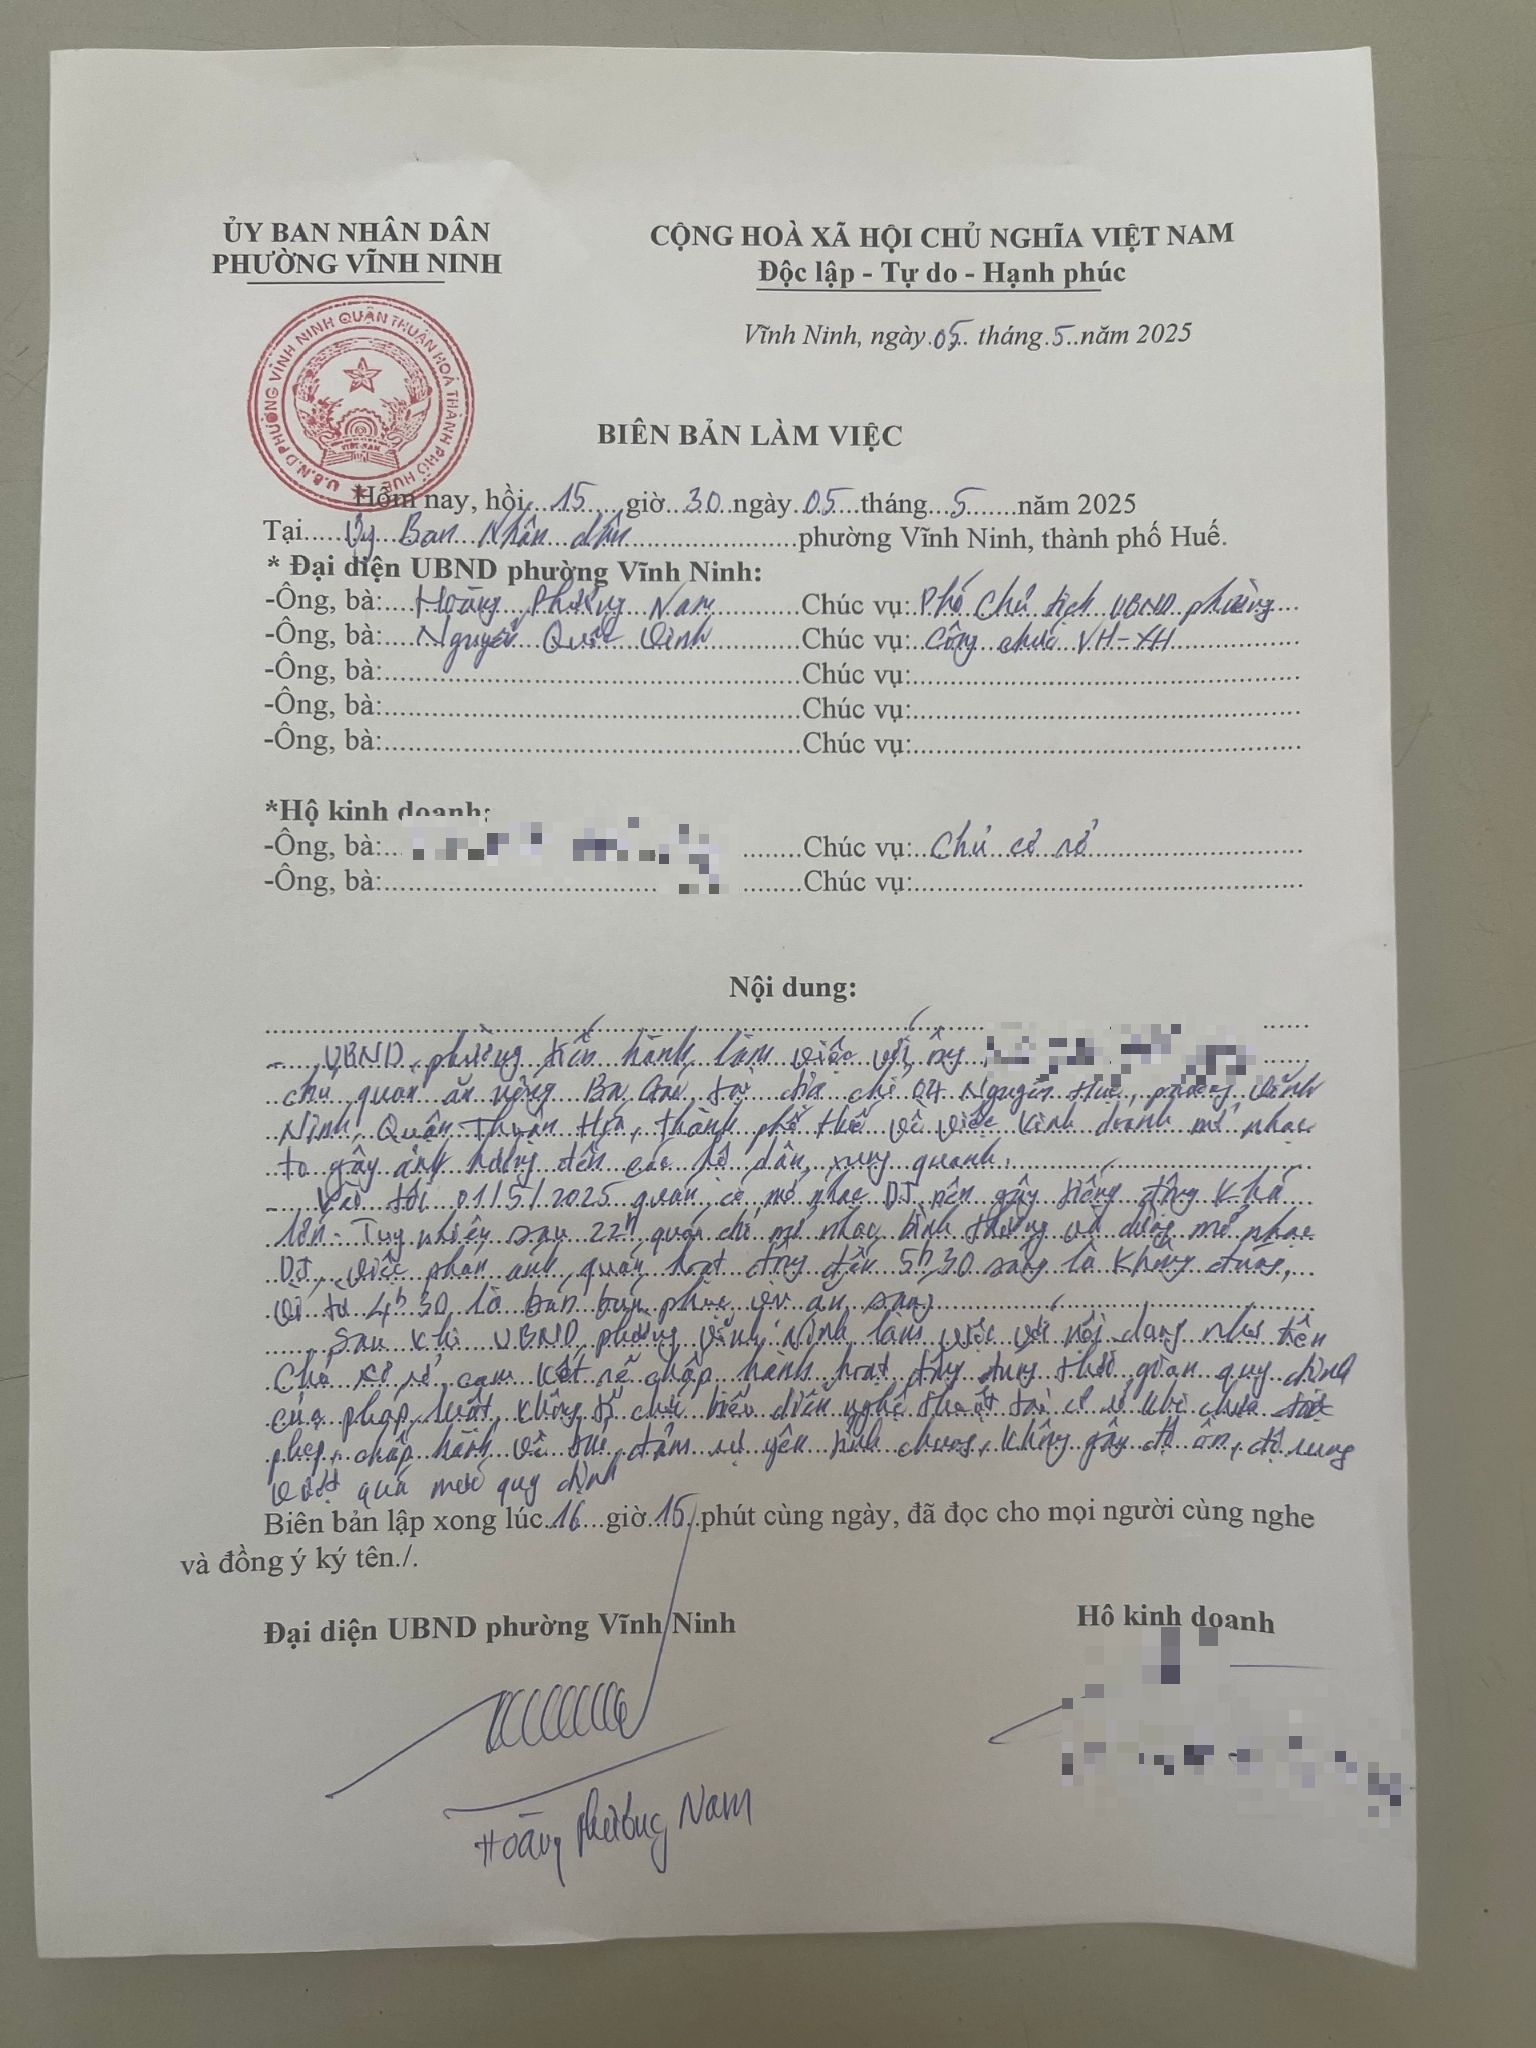 ỦY BAN NHÂN DÂN
PHƯỜNG VĨNH NINH
CỘNG HOÀ XÃ HỘI CHỦ NGHĨA VIỆT NAM
Độc lập - Tự do - Hạnh phúc
Vĩnh Ninh, ngày 05 tháng 5 năm 2025
U.B.N.D PHƯỜNG VĨNH NINH QUẬN THUẬN HOÁ THÀNH PHỐ HUẾ
VIỆT NAM
BIÊN BẢN LÀM VIỆC
Hôm nay, hồi 15 giờ 30 ngày 05 tháng 5 năm 2025
Tại Ủy Ban Nhân dân phường Vĩnh Ninh, thành phố Huế.
* Đại diện UBND phường Vĩnh Ninh:
-Ông, bà: Hoàng Phương Nam Chúc vụ: Phó Chủ tịch UBND phường
-Ông, bà: Nguyễn Quốc Chúc vụ: Công chức VH-XH
-Ông, bà: Chúc vụ:
-Ông, bà: Chúc vụ:
-Ông, bà: Chúc vụ:
*Hộ kinh doanh:
-Ông, bà: Chúc vụ: Chủ cơ sở
-Ông, bà: Chúc vụ:
Nội dung:
- UBND phường tiến hành làm việc với ông
chủ quán ăn uống tại địa chỉ 04 Nguyễn Huệ, phường Vĩnh
Ninh, Quận Thuận Hóa, thành phố Huế về việc kinh doanh mở nhạc
to gây ảnh hưởng đến các hộ dân xung quanh.
- Vào tối 01/5/2025 quán có mở nhạc DJ nên gây tiếng động khá
lớn. Tuy nhiên sau 22h quán chỉ mở nhạc bình thường và dừng mở nhạc
DJ, việc phản ánh quán hoạt động đến 5h30 sáng là không đúng,
vì từ 4h30 là bán bún phục vụ ăn sáng
Sau khi UBND phường Vĩnh Ninh làm việc với nội dung như trên
Chủ cơ sở cam kết sẽ chấp hành hoạt động đúng thời gian quy định
của pháp luật, không tổ chức biểu diễn nghệ thuật tại cơ sở khi chưa được
phép, chấp hành về bảo đảm sự yên tĩnh chung, không gây độ ồn, độ rung
vượt quá mức quy định
Biên bản lập xong lúc 16 giờ 15 phút cùng ngày, đã đọc cho mọi người cùng nghe
và đồng ý ký tên./.
Đại diện UBND phường Vĩnh Ninh
Hộ kinh doanh
Hoàng Phương Nam